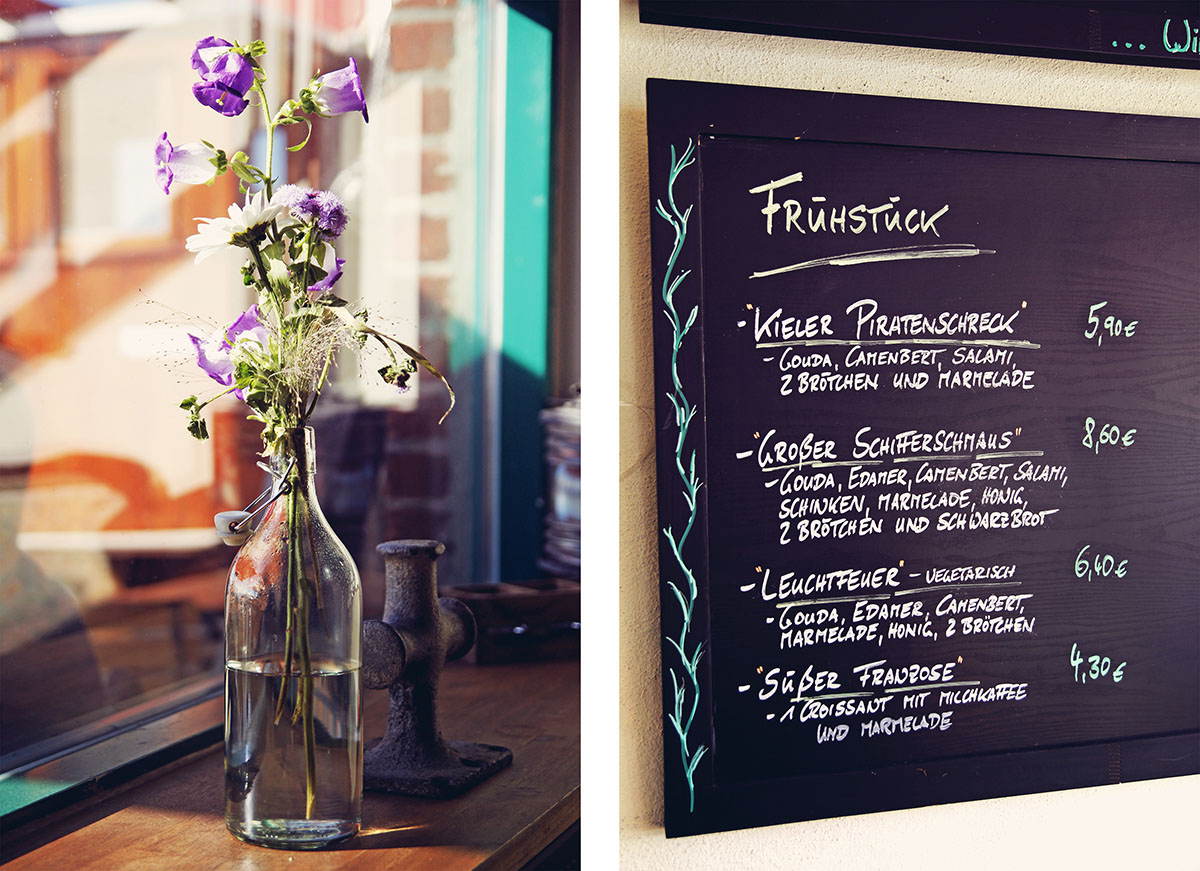 ... Wi
FRÜHSTÜCK
- "KIELER PIRATENSCHRECK" 5,90 €
- GOUDA, CAMENBERT, SALAMI,
2 BRÖTCHEN UND MARMELADE
- "GROßER SCHIFFERSCHMAUS" 8,60 €
- GOUDA, EDAMER, CAMENBERT, SALAMI,
SCHINKEN, MARMELADE, HONIG,
2 BRÖTCHEN UND SCHWARZBROT
- "LEUCHTFEUER" - VEGETARISCH 6,40 €
- GOUDA, EDAMER, CAMENBERT,
MARMELADE, HONIG, 2 BRÖTCHEN
- "SÜßER FRANZOSE" 4,30 €
- 1 CROISSANT MIT MILCHKAFFEE
UND MARMELADE